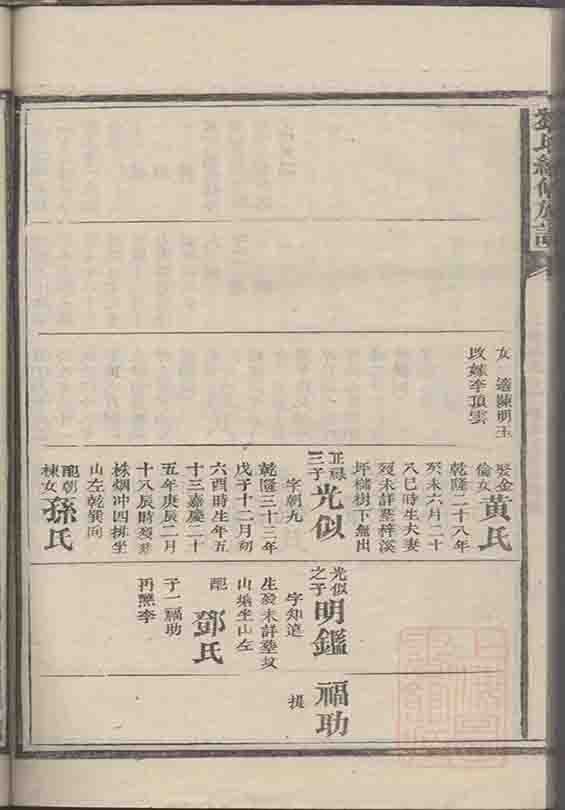 女 適陳明玉
改嫁李頂雲
娶金
倫女
黄氏
乾隆二十八年
癸未六月二十
八巳時生夫妻
歿未詳葬梓溪
坪櫧樹下無出
正祿
三子
光似
字朝九
乾隆三十三年
戊子十二月初
六酉時生年五
十三嘉慶二十
五年庚辰二月
十八辰時歿葬
株烟冲四排坐
山左乾巽向
配朝
棟女
孫氏
光似
之子
明鑑
字知遠
生歿未詳葬坟
山坳坐山左
配
鄧氏
子一福助
再醮李
福助
提